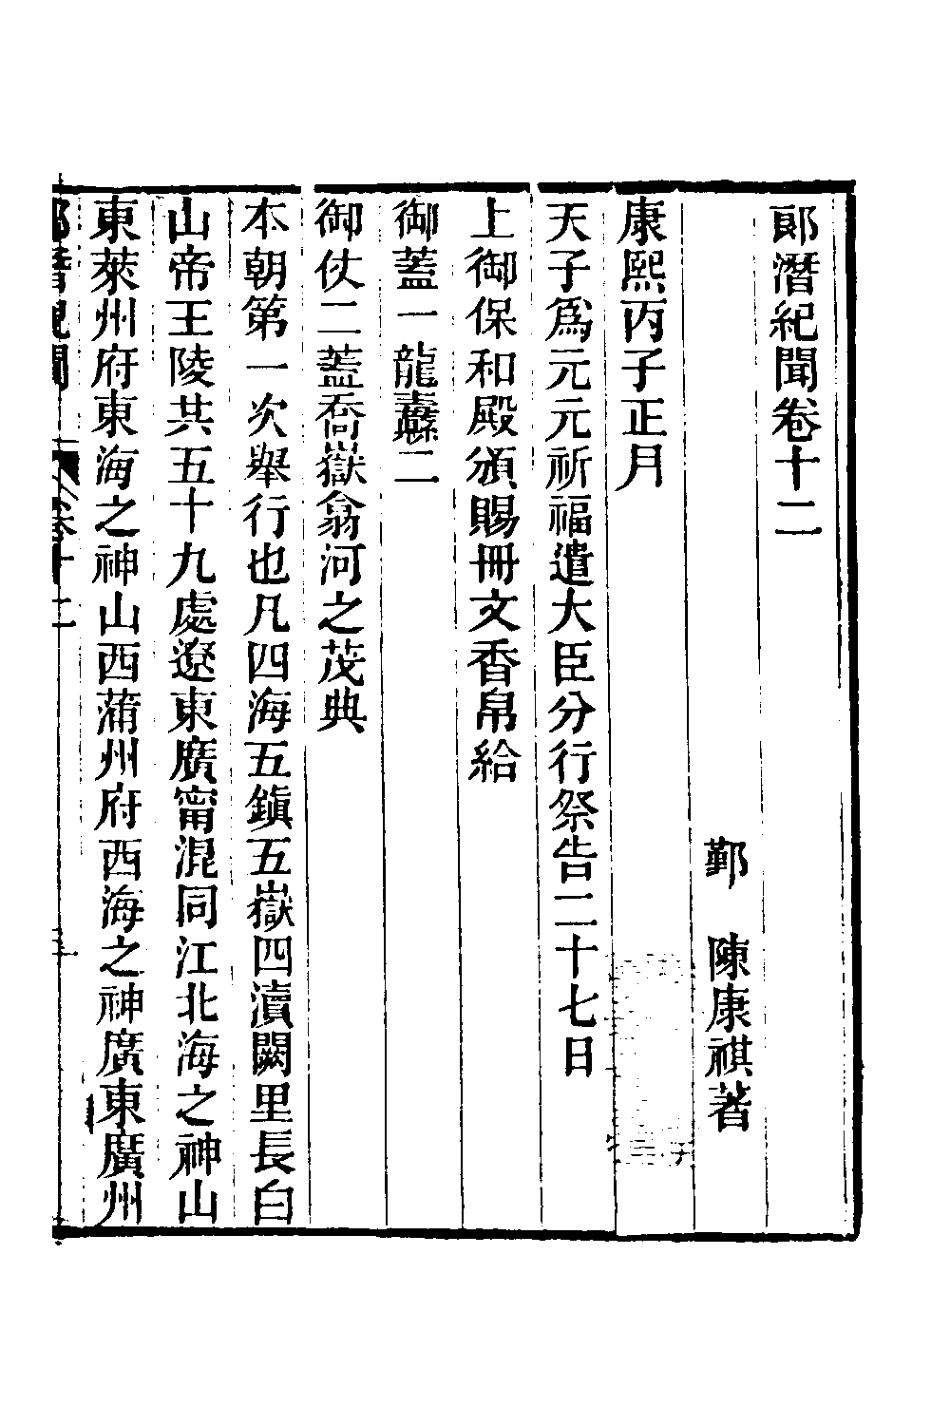 郞潛紀聞卷十二
鄞　陳康祺著
康熙丙子正月
天子爲元元祈福遣大臣分行祭告二十七日
上御保和殿頒賜冊文香帛給
御蓋一龍纛二
御仗二蓋喬嶽翕河之茂典
本朝第一次舉行也凡四海五鎭五嶽四瀆闕里長白
山帝王陵共五十九處遼東廣甯混同江北海之神山
東萊州府東海之神山西蒲州府西海之神廣東廣州
郞潛紀聞　卷十二　一